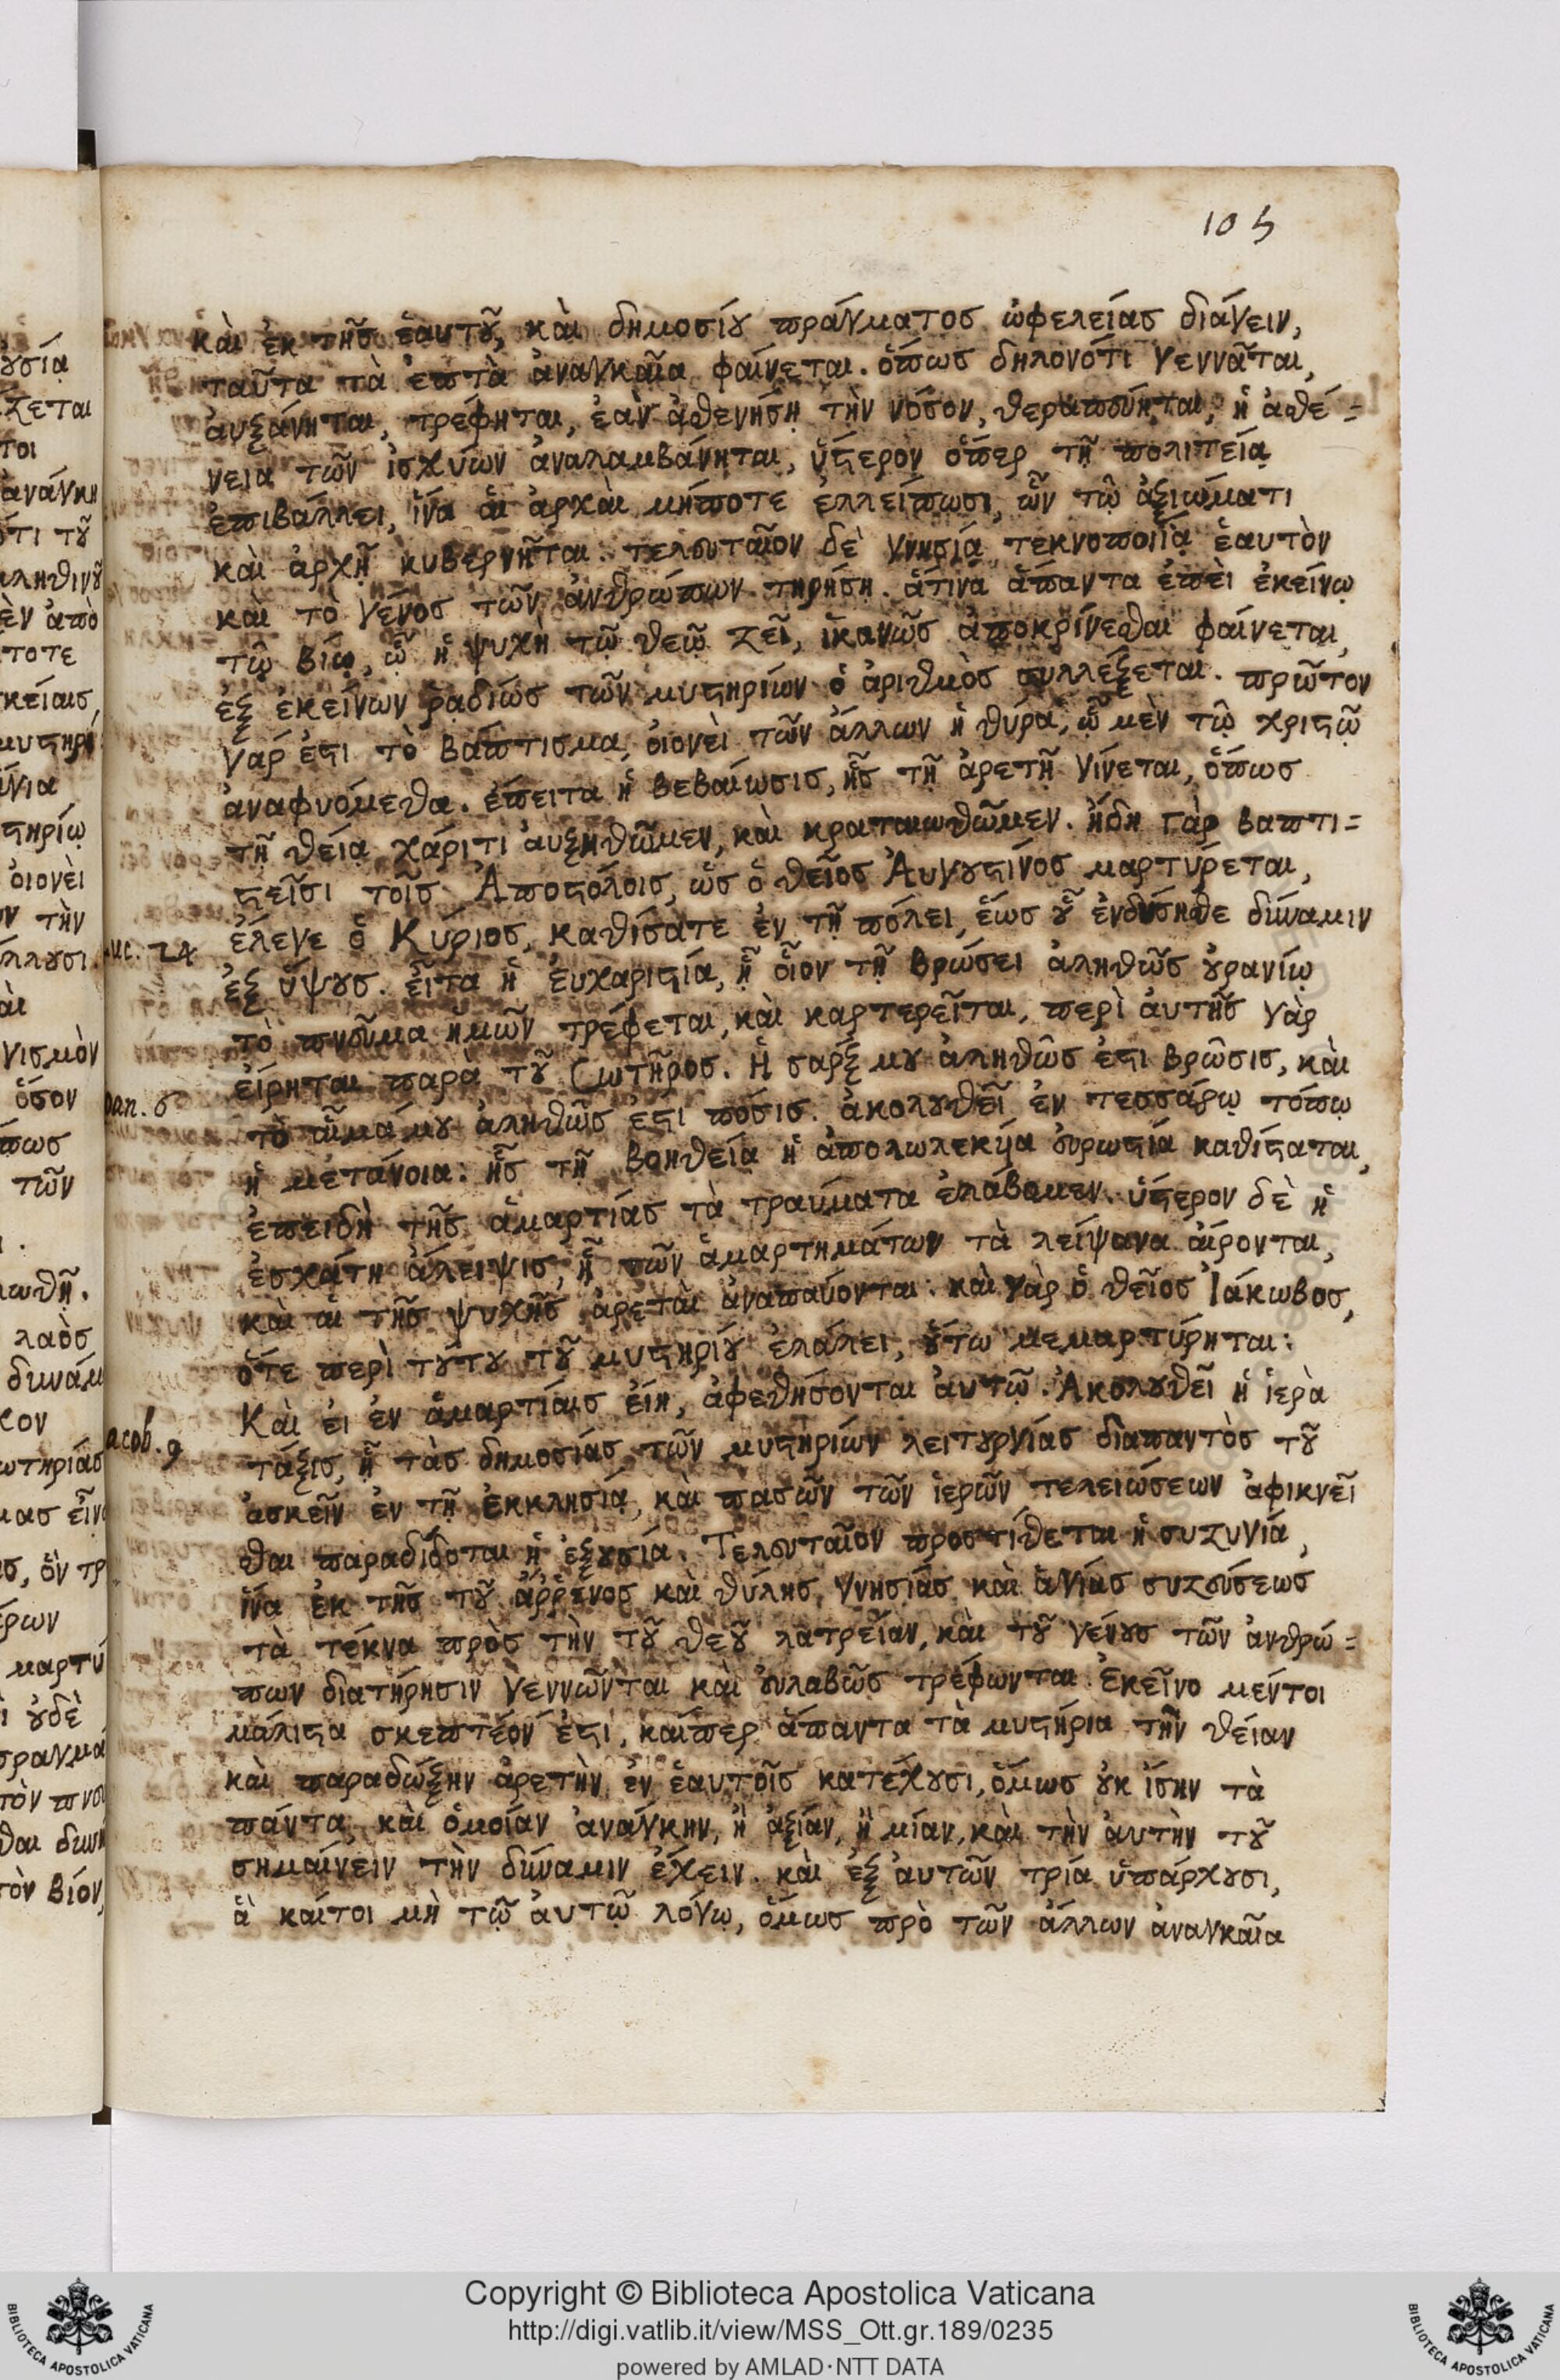 105
καὶ ἐκ τῆς ἑαυτοῦ, καὶ δημοσίου πράγματος ὠφελείας διάγειν,
ταῦτα τὰ ἑπτὰ ἀναγκαῖα φαίνεται. ὅπως δηλονότι γεννᾶται,
ἀυξάνηται, τρέφηται, ἐὰν ἀσθενήσῃ τὴν νόσον, θεραπεύηται, ἡ ἀσθέ=
νεια τῶν ἰσχύων ἀναλαμβάνηται, ὕστερον ὅπερ τῇ πολιτείᾳ
ἐπιβάλλει, ἵνα ἁι ἀρχὰι μήποτε ἐλλείπωσι, ὧν τῷ ἀξιώματι
καὶ ἀρχῇ κυβερνῆται. τελευταῖον δὲ γνησίᾳ τεκνοποιΐᾳ ἑαυτὸν
καὶ τὸ γένος τῶν ἀνθρώπων τηρήσῃ. ἅτινα ἅπαντα ἐπὲι ἐκείνῳ
τῷ βίῳ, ᾧ ἡ ψυχὴ τῷ θεῷ ζεῖ, ἱκανῶς ἀποκρίνεσθαι φαίνεται,
ἐξ ἐκείνων ῥαδίως τῶν μυστηρίων ὁ ἀριθμὸς συλλέξεται. πρῶτον
γάρ ἐστι τὸ βάπτισμα, ὁιονεὶ τῶν ἄλλων ἡ θύρα, ᾧ μὲν τῷ χριστῷ
ἀναφυόμεθα. ἔπειτα ἡ βεβαίωσις, ἧς τῇ ἀρετῇ γίνεται, ὅπως
τῇ θείᾳ χάριτι ἀυξηθῶμεν, καὶ κραταιωθῶμεν. ἤδη γὰρ βαπτι=
στεῖσι τοῖς Ἀποστόλοις, ὥς ὁ θεῖος Ἀυγουστίνος μαρτύρεται,
ἔλεγε ὁ Κύριος, καθίσατε ἐν τῇ πόλει, ἕως οὗ ἐνδύσησθε δύναμιν
uc. 24
ἐξ ὕψους. ἔιτα ἡ ἐυχαριστία, ᾗ οἷον τῇ βρώσει ἀληθῶς ὀυρανίῳ
τὸ πνεῦμα ἡμῶν τρέφεται, καὶ καρτερεῖται, περὶ ἀυτῆς γὰρ
ἐίρηται παρὰ τοῦ Σωτῆρος. Ἡ σαρξ μου ἀληθῶς ἐστι βρῶσις, καὶ
oan. 6
τὸ αἷμά μου ἀληθῶς ἐστι πόσις. ἀκολουθεῖ ἐν τεσσάρῳ τόπῳ
ἡ μετάνοια: ἧς τῇ βοηθείᾳ ἡ ἀπολωλεκυῖα ἐυρωστία καθίσταται,
ἐπειδὴ τῆς ἁμαρτίας τὰ τραύματα ἐλάβομεν. ὕστερον δὲ ἡ
ἐσχάτη ἄλειψις, ᾗ τῶν ἁμαρτημάτων τὰ λείψανα ἀίρονται,
καὶ ἁι τῆς ψυχῆς ἀρεταὶ ἀναπαύονται: καὶ γὰρ ὁ θεῖος Ἰάκωβος,
ὅτε περὶ τούτου τοῦ μυστηρίου ἐλάλει, ὅυτω μεμαρτύρηται:
Καὶ ἐι ἐν ἁμαρτίαις ἐίη, ἀφεθήσονται ἀυτῷ. Ἀκολουθεῖ ἡ ἱερὰ
acob. 9
τάξις, ᾗ τὰς δημοσίας τῶν μυστηρίων λειτουργίας διαπαντὸς τοῦ
ἀσκεῖν ἐν τῇ ἐκκλησίᾳ, καὶ πασῶν τῶν ἱερῶν τελειώσεων ἀφικνεῖ
σθαι παραδίδοται ἡ ἐξουσία. Τελευταῖον προστίθεται ἡ συζυγία,
ἵνα ἐκ τῆς τοῦ ἄῤῥενος καὶ θύλης γνησίας καὶ ἁγίας συζεύξεως
τὰ τέκνα πρὸς τὴν τοῦ θεοῦ λατρείαν, καὶ τοῦ γένους τῶν ἀνθρώ=
πων διατήρησιν γεννῶνται καὶ ἐυλαβῶς τρέφωνται. Ἐκεῖνο μέντοι
μάλιστα σκεπτέον ἐστι, καίπερ ἅπαντα τὰ μυστήρια τὴν θείαν
καὶ παραδώξην ἀρετὴν ἐν ἑαυτοῖς κατέχουσι, ὅμως ὀυκ ἴσην τὰ
πάντα, καὶ ὁμοίαν ἀνάγκην, ἢ ἀξίαν, ἢ μίαν, καὶ τὴν ἀυτὴν τοῦ
σημαίνειν τὴν δύναμιν ἔχειν. καὶ ἐξ ἀυτῶν τρία ὑπάρχουσι,
ἃ καίτοι μὴ τῷ ἀυτῷ λόγῳ, ὅμως πρὸ τῶν ἄλλων ἀναγκαῖα
Copyright © Biblioteca Apostolica Vaticana
http://digi.vatlib.it/view/MSS_Ott.gr.189/0235
powered by AMLAD·NTT DATA
BIBLIOTECA APOSTOLICA VATICANA
BIBLIOTECA APOSTOLICA VATICANA